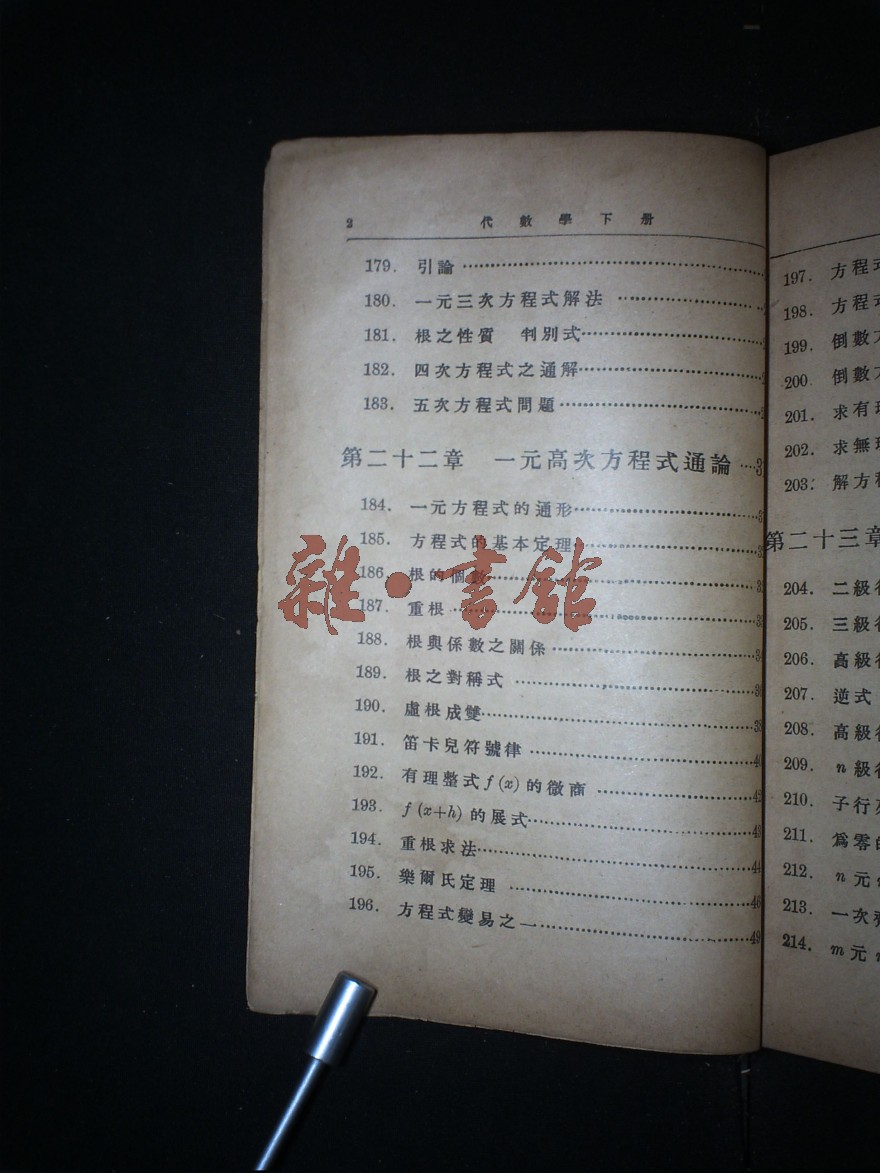 2 代數學下册
179. 引論
180. 一元三次方程式解法
181. 根之性質 判別式
182. 四次方程式之通解
183. 五次方程式問題
第二十二章 一元高次方程式通論 3
184. 一元方程式的通形 3
185. 方程式的基本定理 3
186. 根的個數 3
187. 重根 3
188. 根與係數之關係 34
189. 根之對稱式 36
190. 虛根成雙 38
191. 笛卡兒符號律 40
192. 有理整式 f(x) 的微商 42
193. f(x+h) 的展式 43
194. 重根求法 44
195. 樂爾氏定理 46
196. 方程式變易之一 49
雜·書館
197. 方程式
198. 方程式
199. 倒數方
200. 倒數方
201. 求有理
202. 求無理
203. 解方程
第二十三章
204. 二級行
205. 三級行
206. 高級行
207. 逆式
208. 高級行
209. n級行
210. 子行列
211. 爲零的
212. n元
213. 一次齊
214. m元